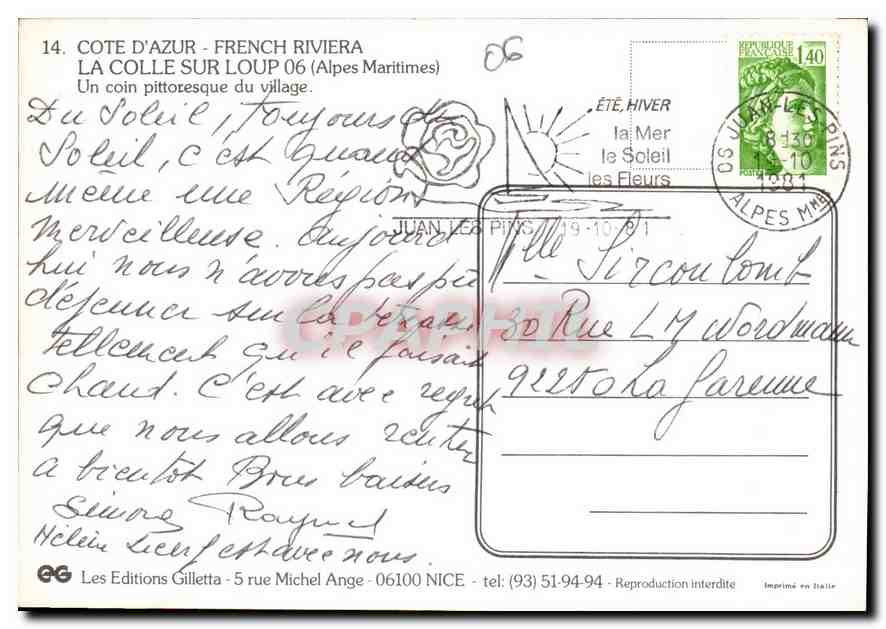 14. COTE D'AZUR - FRENCH RIVIERA
LA COLLE SUR LOUP 06 (Alpes Maritimes)
Un coin pittoresque du village.
06
REPUBLIQUE
FRANCAISE
1,40
ÉTÉ, HIVER
la Mer
le Soleil
les Fleurs
JUAN-LES-PINS 19-10-81
06 JUAN-LES-PINS
8H30
19-10
1981
ALPES MMES
Du Soleil, toujours du
Soleil, c'est quand
même une Région
merveilleuse. aujourd
hui nous n'avons pas pu
déjeuner sur la terrasse
tellement qu'il faisait
chaud. C'est avec regret
que nous allons rentrer
a bientot Bons baisers
Simone Raymond
Hélène est avec nous.
Mlle Sircoulomb
30 Rue L M Nordmann
92250 La Garenne
CPAPHIL
EG Les Editions Gilletta - 5 rue Michel Ange - 06100 NICE - tel: (93) 51-94-94 - Reproduction interdite
Imprimé en Italie